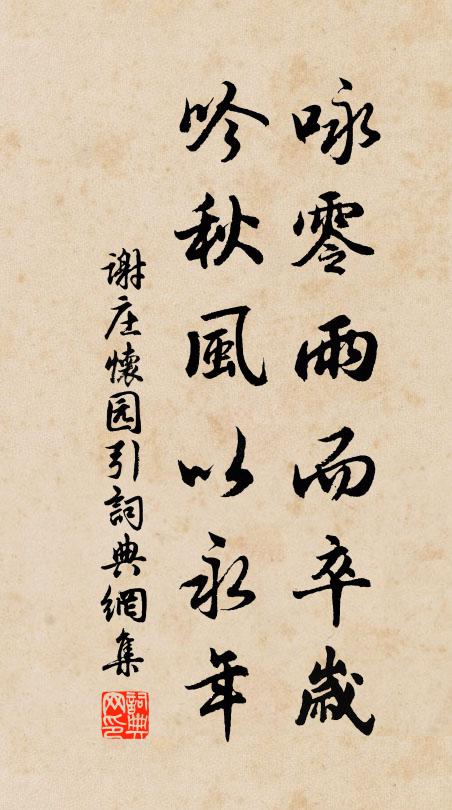 咏零雨而卒歲
吟秋風以永年
谢庄懷园引詞典網集
詞典网印